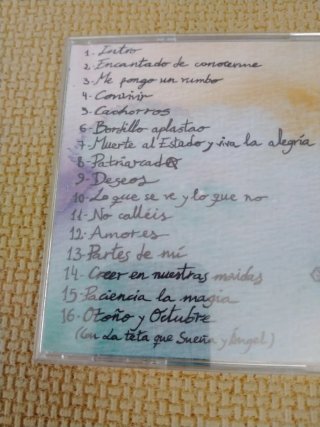 1- Intro
2- Encantado de conocerme
3- Me pongo un rumbo
4- Convivir
5- Cachorros
6- Bordillo aplastao
7- Muerte al Estado y viva la alegría
8- Patriarcado
9- Deseos
10- Lo que se ve y lo que no
11- No calléis
12- Amores
13- Partes de mí
14- Creer en nuestras movidas
15- Paciencia la magia
16- Otoño y Octubre
(Con La teta que Sueña y Ángel)